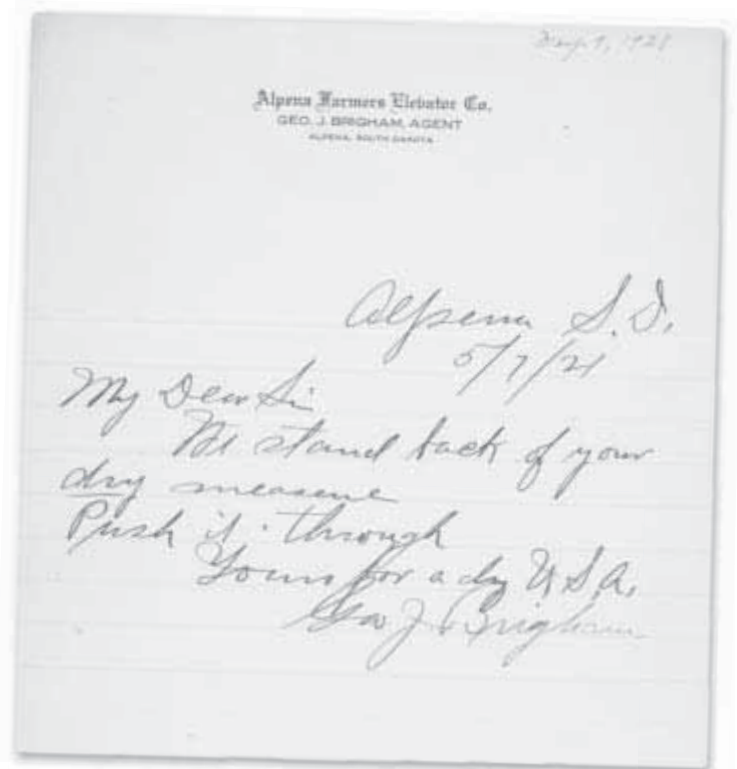 May 9, 1921
Alpena Farmers Elevator Co.
GEO. J. BRIGHAM, AGENT
ALPENA, SOUTH DAKOTA
Alpena S.D.
5/7/21
My Dear Sir
We stand back of your
dry measure
Push it through
Yours for a dry U.S.A.
Geo J. Brigham